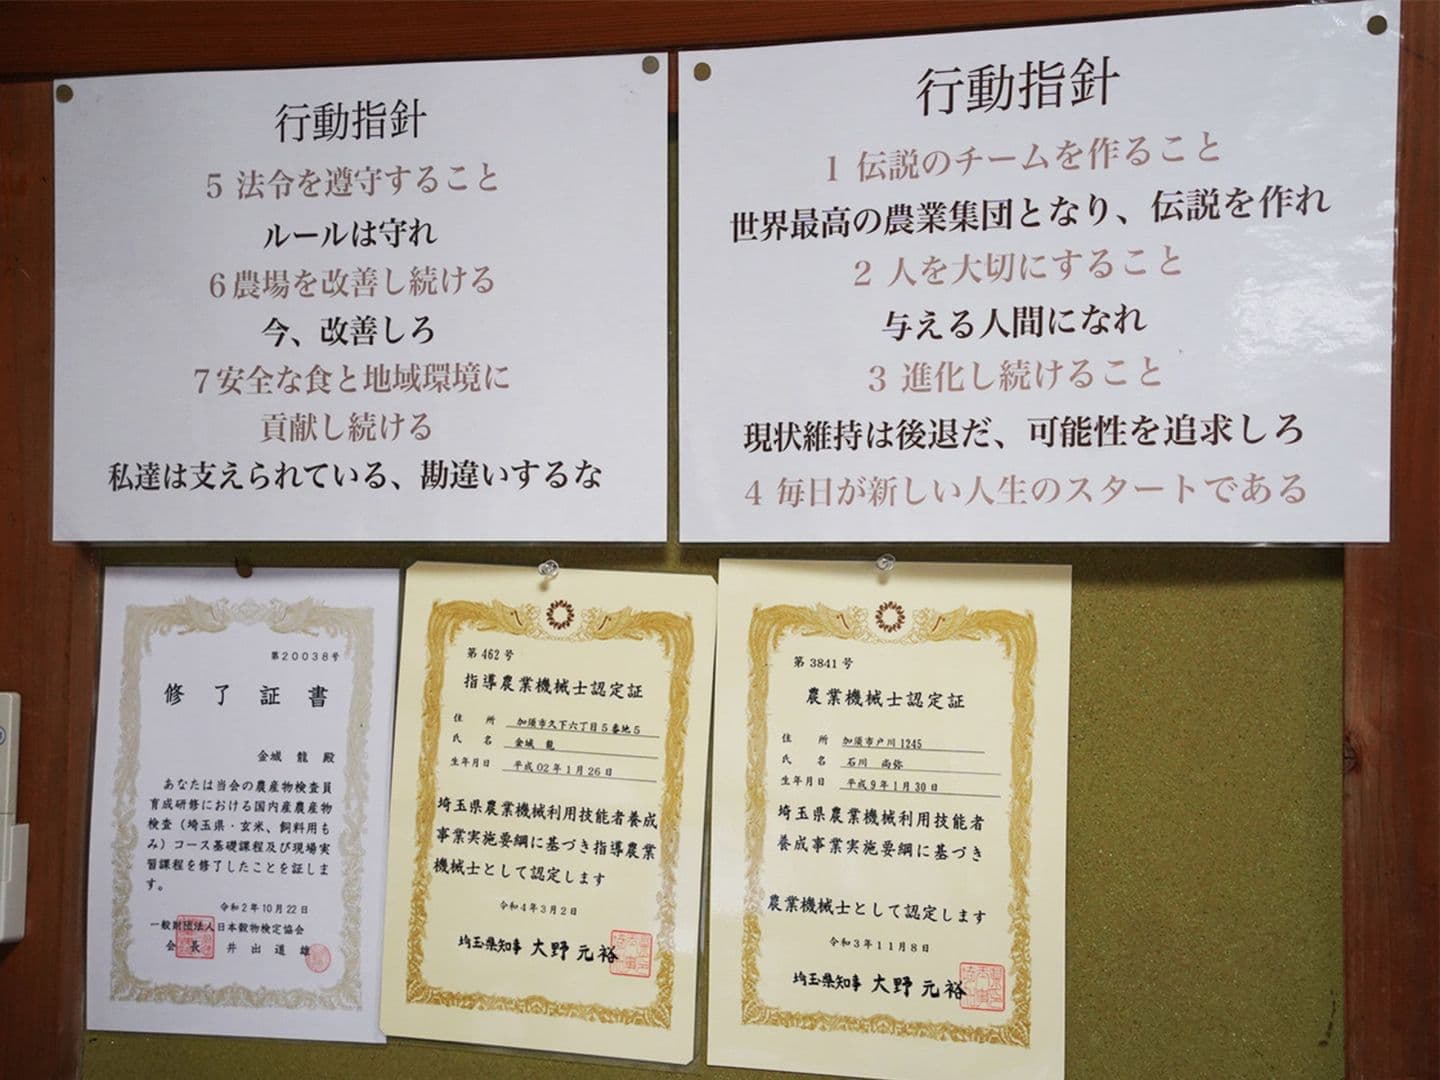 行動指針
5 法令を遵守すること
ルールは守れ
6農場を改善し続ける
今、改善しろ
7安全な食と地域環境に
貢献し続ける
私達は支えられている、勘違いするな
行動指針
1 伝説のチームを作ること
世界最高の農業集団となり、伝説を作れ
2 人を大切にすること
与える人間になれ
3 進化し続けること
現状維持は後退だ、可能性を追求しろ
4 毎日が新しい人生のスタートである
第20038号
修了証書
金城 龍 殿
あなたは当会の農産物検査員
育成研修における国内産農産物
検査（埼玉県・玄米、飼料用も
み）コース基礎課程及び現場実
習課程を修了したことを証しま
す。
令和2年10月22日
一般財団法人日本穀物検定協会
会長 井出道雄
第462号
指導農業機械士認定証
住所 加須市久下六丁目5番地5
氏名 金城 龍
生年月日 平成02年1月26日
埼玉県農業機械利用技能者養成
事業実施要綱に基づき指導農業
機械士として認定します
令和4年3月2日
埼玉県知事 大野元裕
第3841号
農業機械士認定証
住所 加須市戸川1245
氏名 石川 尚弥
生年月日 平成9年1月30日
埼玉県農業機械利用技能者
養成事業実施要綱に基づき
農業機械士として認定します
令和3年11月8日
埼玉県知事 大野元裕